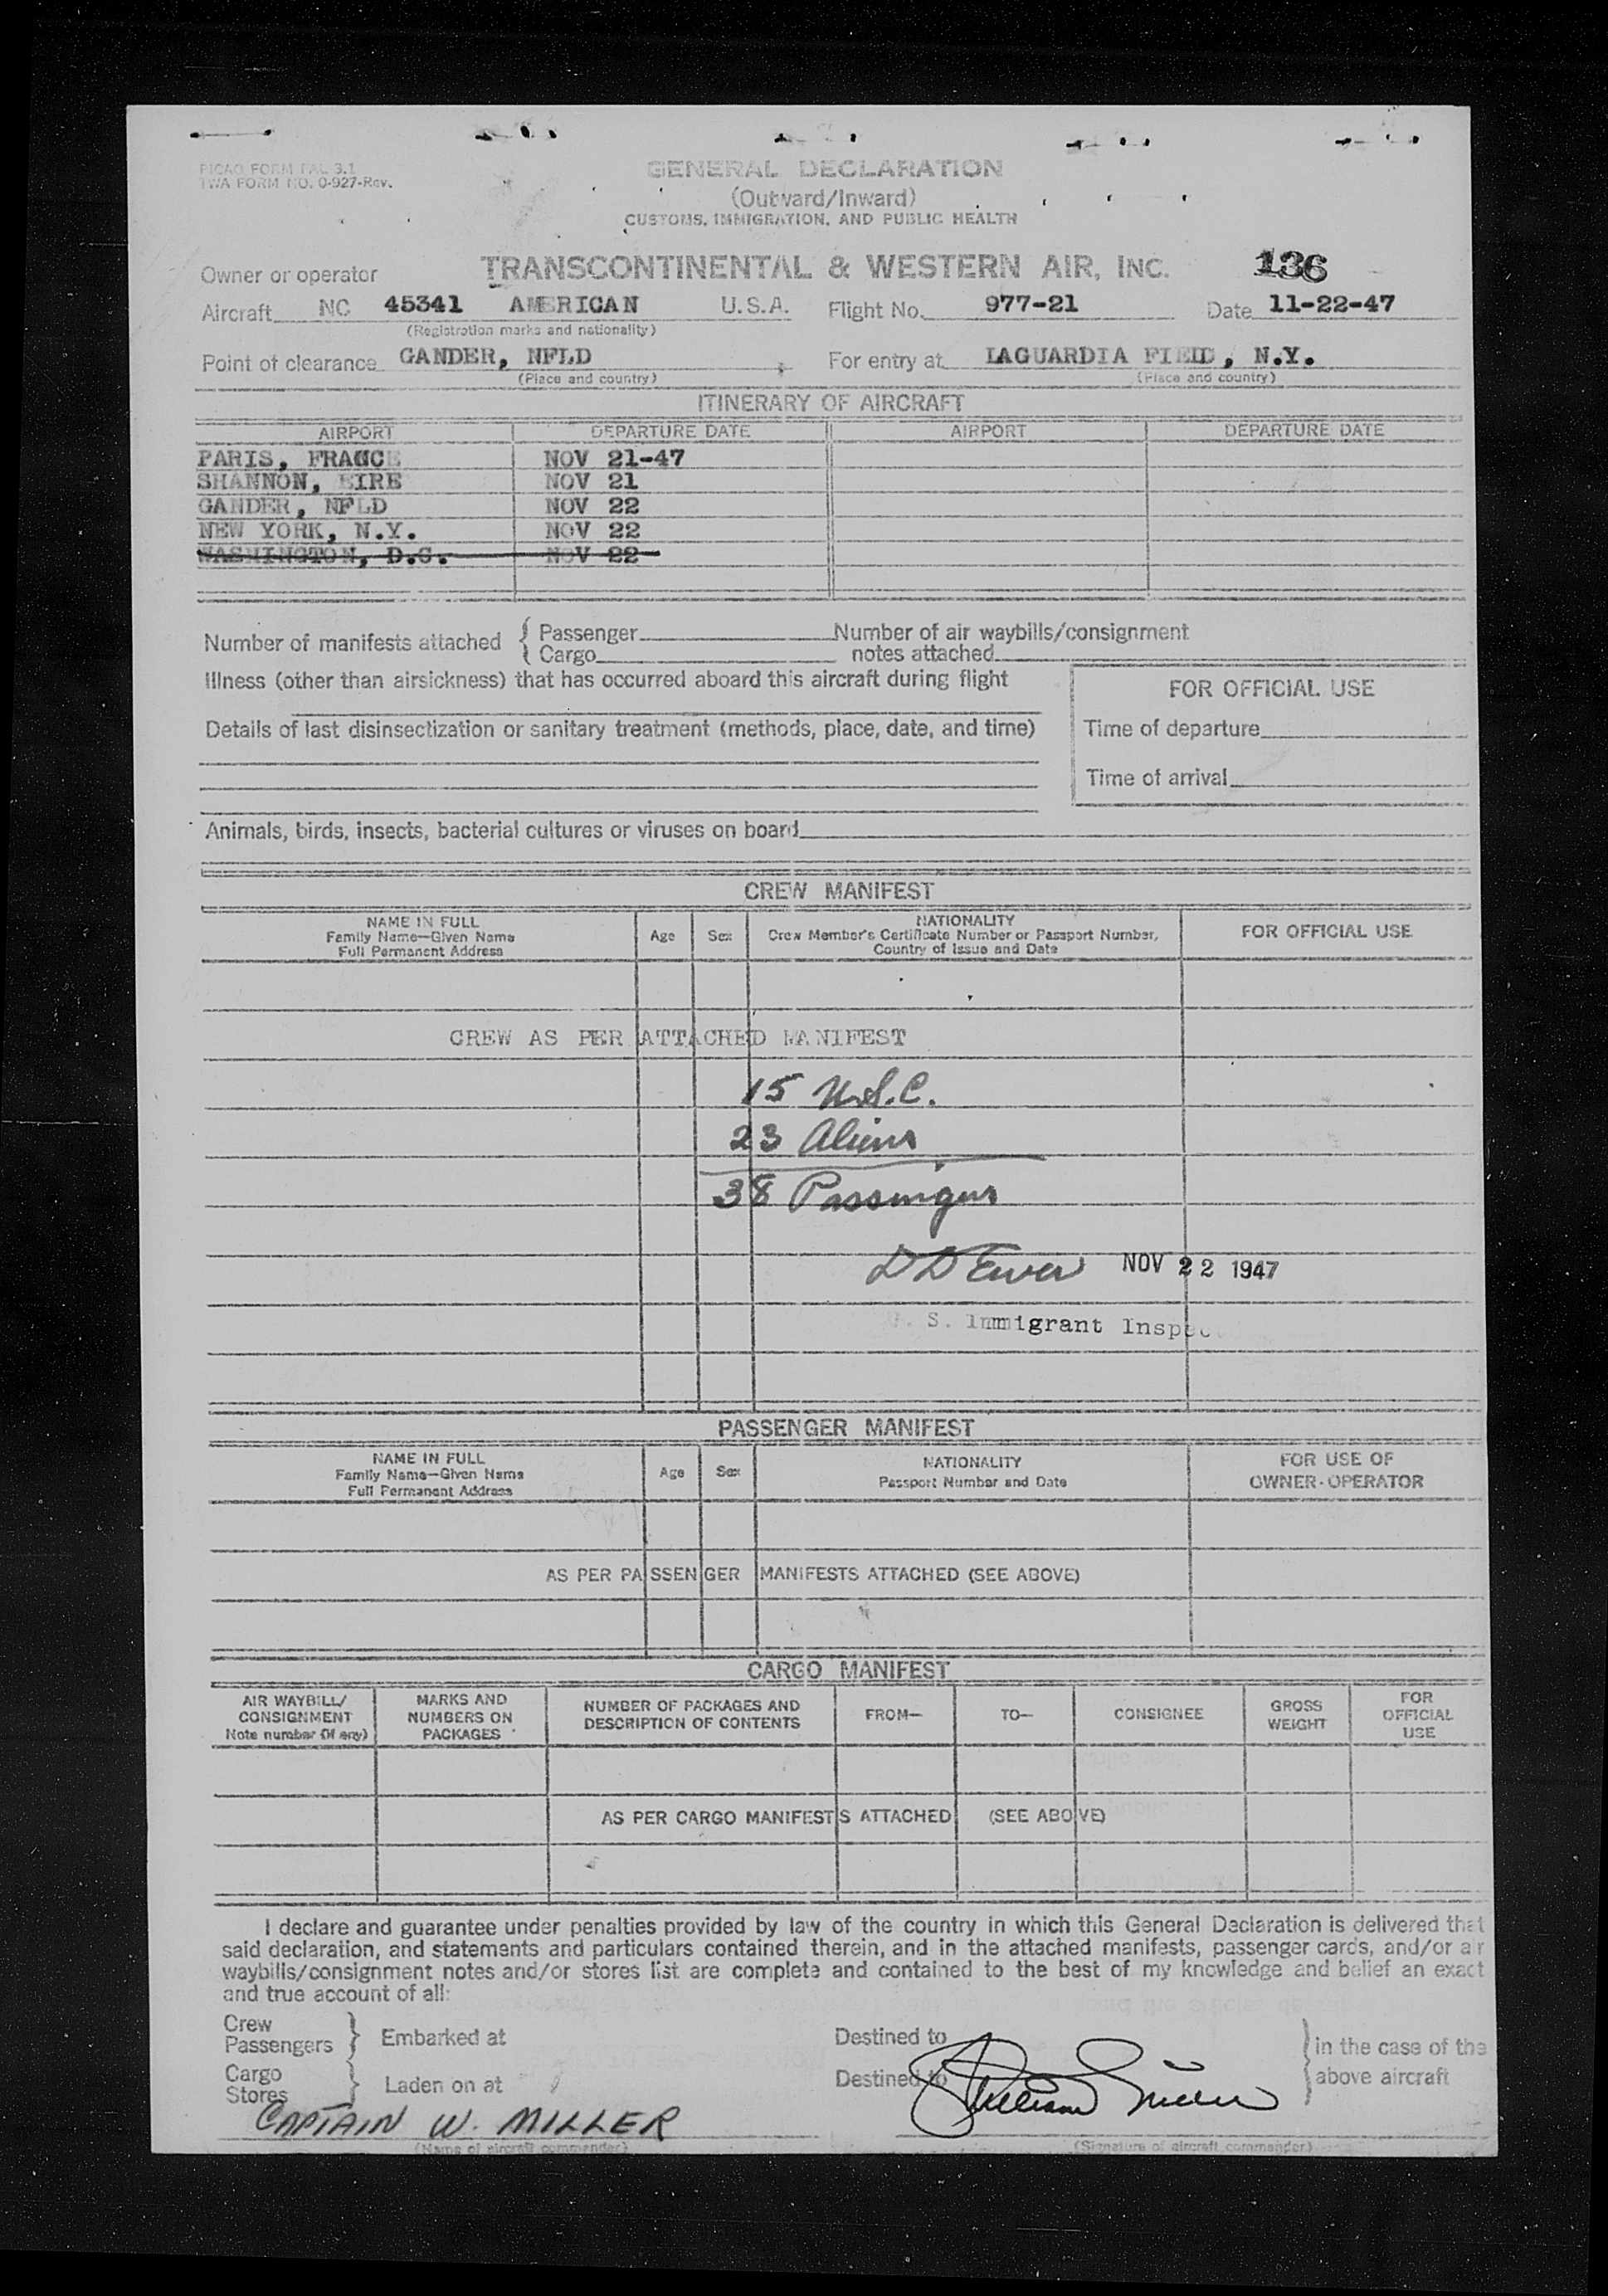 PICAO FORM FAL 3.1
TWA FORM NO. 0-927-Rev.
GENERAL DECLARATION
(Outward/Inward)
CUSTOMS, IMMIGRATION, AND PUBLIC HEALTH
Owner or operator TRANSCONTINENTAL & WESTERN AIR, INC. 136
Aircraft NC 45341 AMERICAN U.S.A. Flight No. 977-21 Date 11-22-47
(Registration marks and nationality)
Point of clearance GANDER, NFLD For entry at LAGUARDIA FIELD, N.Y.
(Place and country) (Place and country)
ITINERARY OF AIRCRAFT
AIRPORT DEPARTURE DATE AIRPORT DEPARTURE DATE
PARIS, FRANCE NOV 21-47
SHANNON, EIRE NOV 21
GANDER, NFLD NOV 22
NEW YORK, N.Y. NOV 22
WASHINGTON, D.C. NOV 22
Number of manifests attached { Passenger Number of air waybills/consignment
{ Cargo notes attached
Illness (other than airsickness) that has occurred aboard this aircraft during flight
FOR OFFICIAL USE
Details of last disinsectization or sanitary treatment (methods, place, date, and time)
Time of departure
Time of arrival
Animals, birds, insects, bacterial cultures or viruses on board
CREW MANIFEST
NAME IN FULL
Family Name—Given Name
Full Permanent Address
Age
Sex
NATIONALITY
Crew Member's Certificate Number or Passport Number,
Country of Issue and Date
FOR OFFICIAL USE
CREW AS PER ATTACHED MANIFEST
15 U.S.C.
23 Aliens
38 Passengers
NOV 22 1947
S. Immigrant Inspec
PASSENGER MANIFEST
NAME IN FULL
Family Name—Given Name
Full Permanent Address
Age
Sex
NATIONALITY
Passport Number and Date
FOR USE OF
OWNER-OPERATOR
AS PER PASSENGER MANIFESTS ATTACHED (SEE ABOVE)
CARGO MANIFEST
AIR WAYBILL/
CONSIGNMENT
Note number (if any)
MARKS AND
NUMBERS ON
PACKAGES
NUMBER OF PACKAGES AND
DESCRIPTION OF CONTENTS
FROM—
TO—
CONSIGNEE
GROSS
WEIGHT
FOR
OFFICIAL
USE
AS PER CARGO MANIFESTS ATTACHED (SEE ABOVE)
I declare and guarantee under penalties provided by law of the country in which this General Declaration is delivered that
said declaration, and statements and particulars contained therein, and in the attached manifests, passenger cards, and/or air
waybills/consignment notes and/or stores list are complete and contained to the best of my knowledge and belief an exact
and true account of all:
Crew
Passengers } Embarked at Destined to } in the case of the
Cargo
Stores } Laden on at Destined to above aircraft
CAPTAIN W. MILLER William Miller
(Name of aircraft commander) (Signature of aircraft commander)